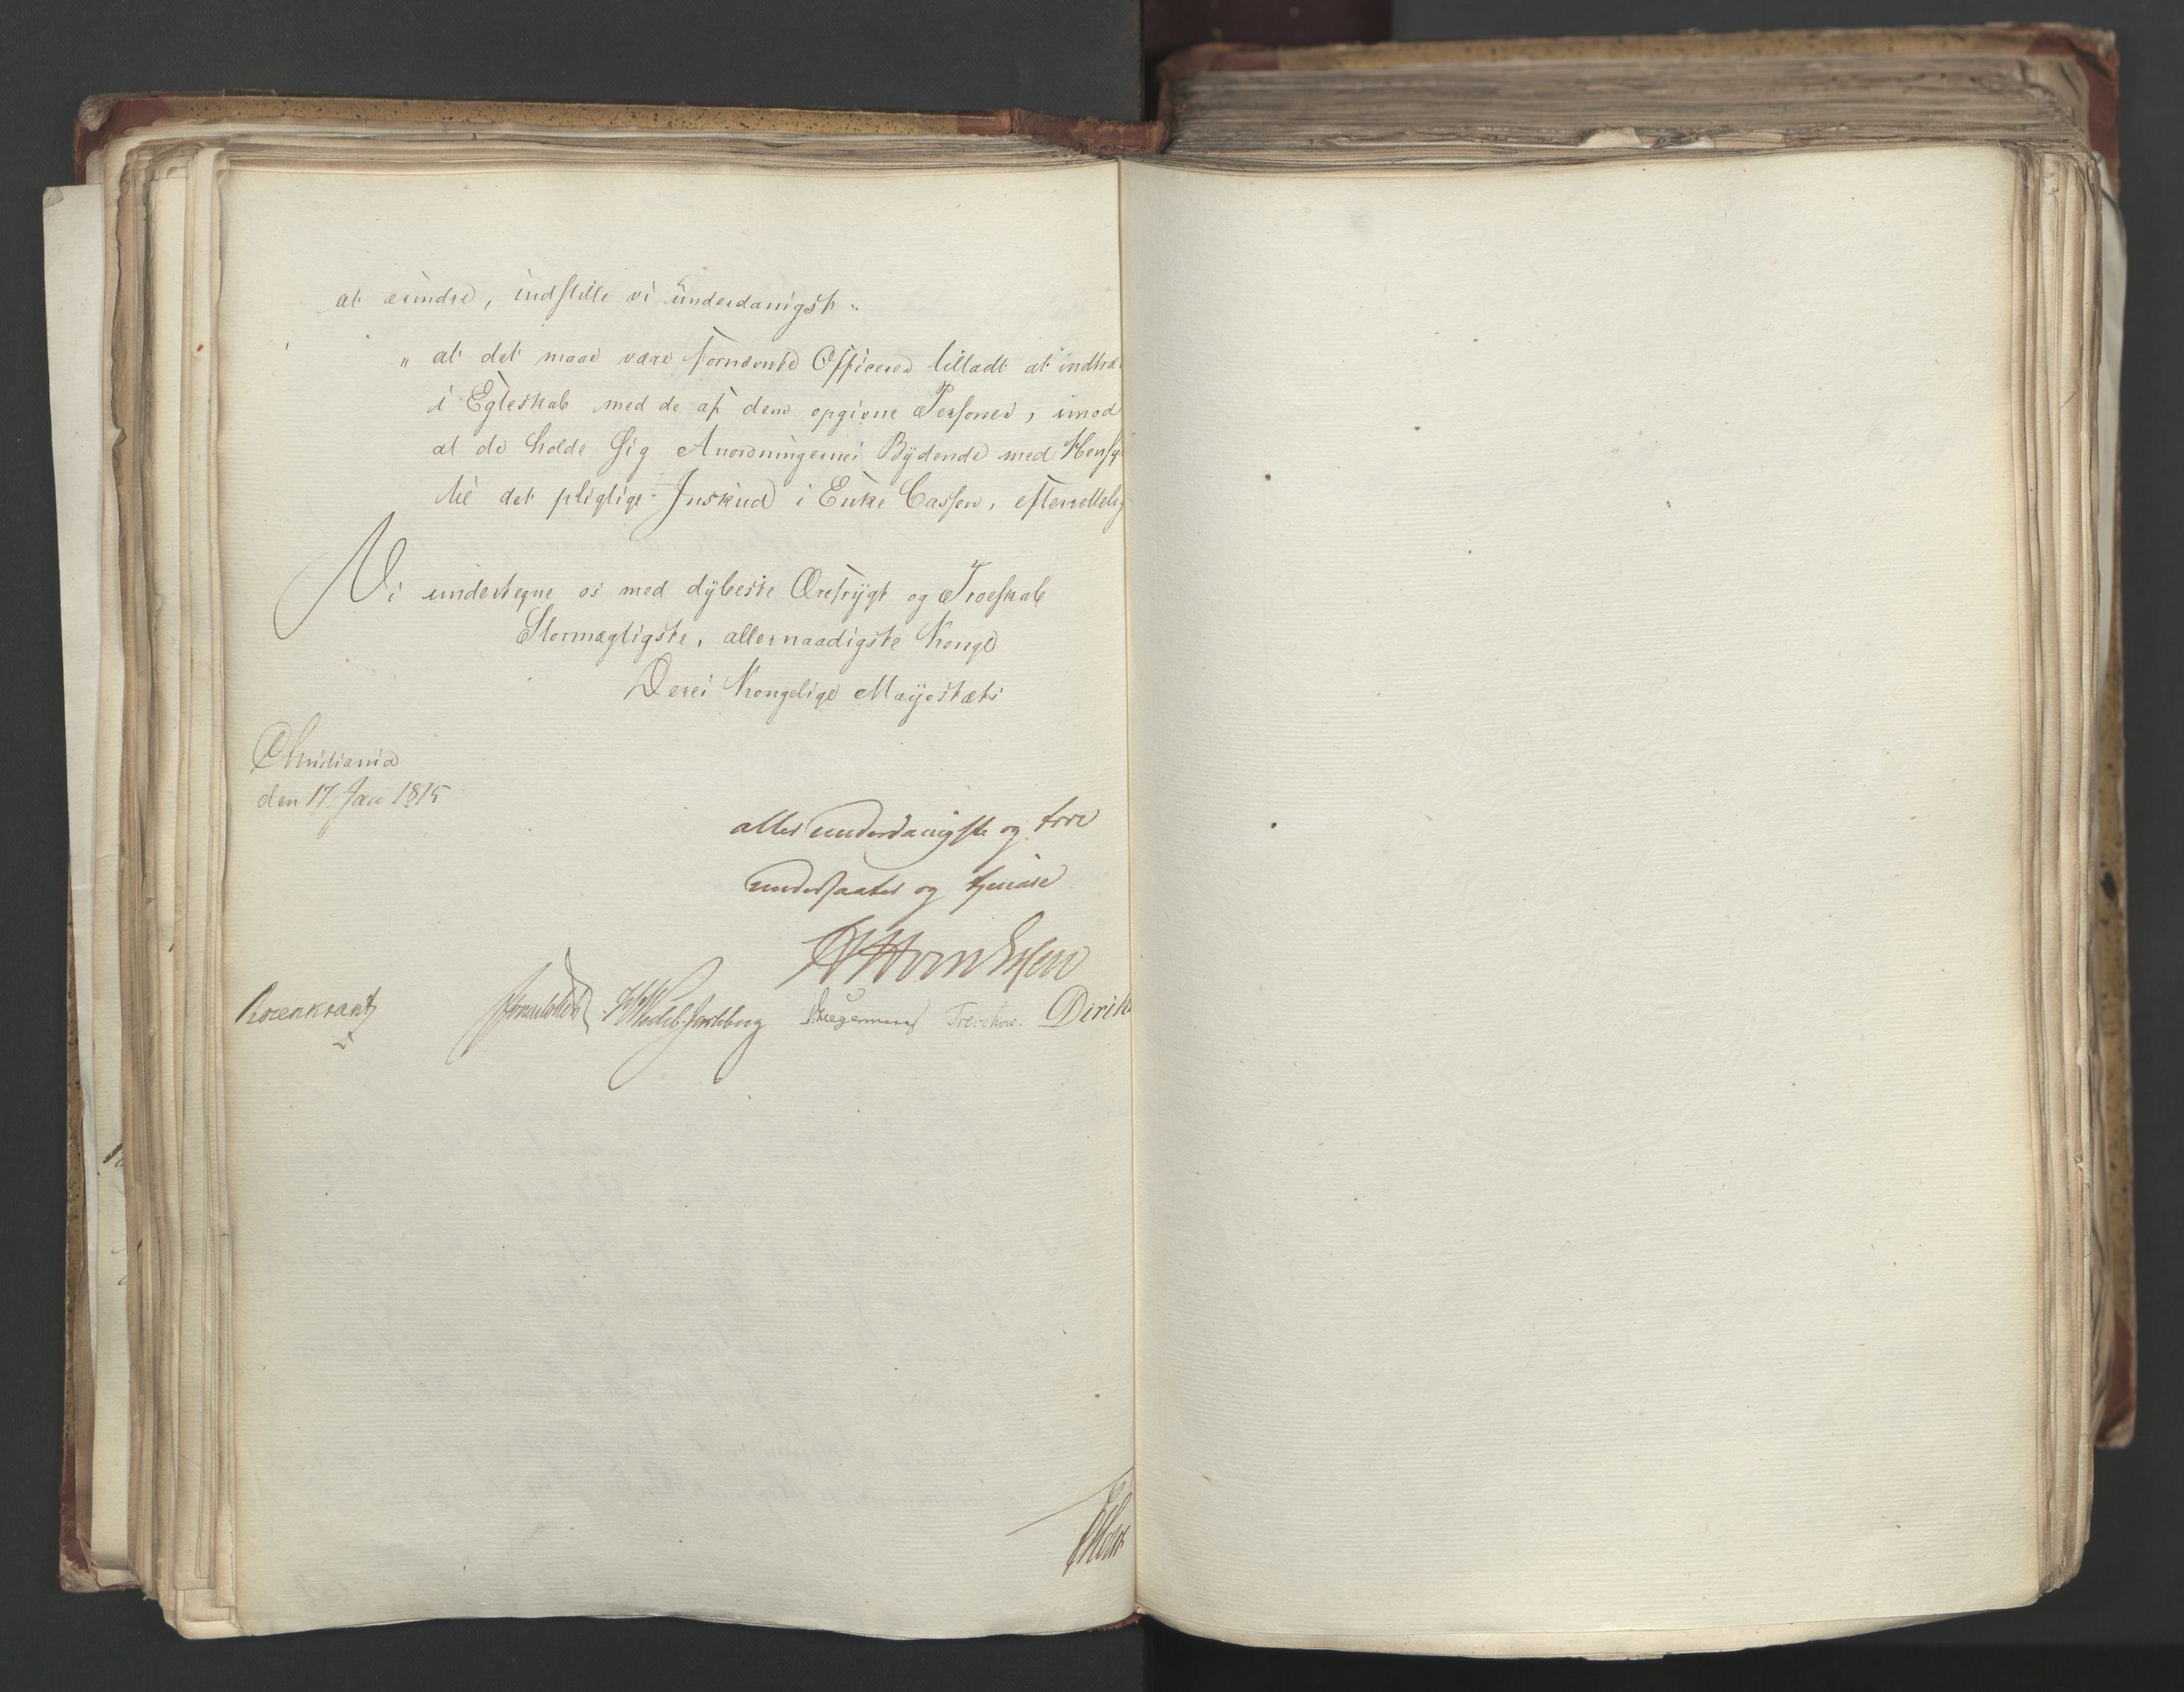 at erindre, indstille vi underdanigst
„ at det maae være fornævnte Officerer tilladt at indtræ
i Egteskab med de af dem opgivne Personer, imod
at de holde sig Anordningernes Bydende med Hensy
til det pligtige Inskud i Enke Cassen, efterrettelig
Vi undertegne os med dybeste Ærefrygt og Troeskab
Stormægtigste, allernaadigste Konge
Deres Kongelige Mayestæts
Christiania
den 17 Jan 1815
allerunderdanigste og troe
undersaatter og tjenere
Rosenkrantz Sommerhielm Wedel-Jarlsberg Krogemann Treschow. Dirik